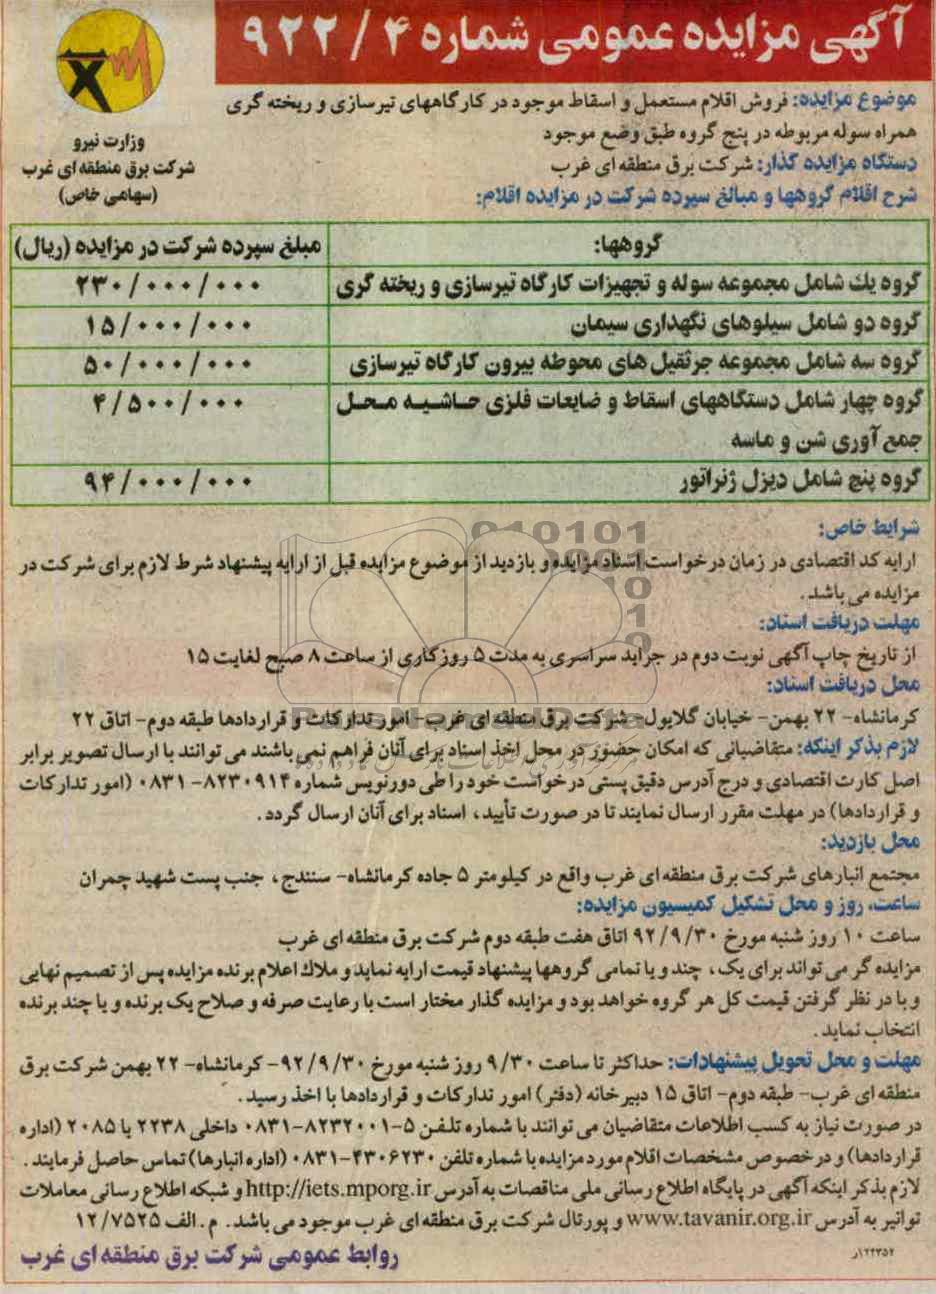 آگهی مزایده عمومی شماره ۹۲۲/۴
وزارت نیرو
شرکت برق منطقه ای غرب
(سهامی خاص)
موضوع مزایده: فروش اقلام مستعمل و اسقاط موجود در کارگاههای تیرسازی و ریخته گری
همراه سوله مربوطه در پنج گروه طبق وضع موجود
دستگاه مزایده گذار: شرکت برق منطقه ای غرب
شرح اقلام گروهها و مبالغ سپرده شرکت در مزایده اقلام:
گروهها: مبلغ سپرده شرکت در مزایده (ریال)
گروه یك شامل مجموعه سوله و تجهیزات کارگاه تیرسازی و ریخته گری ۲۳۰/۰۰۰/۰۰۰
گروه دو شامل سیلوهای نگهداری سیمان ۱۵/۰۰۰/۰۰۰
گروه سه شامل مجموعه جرثقیل های محوطه بیرون کارگاه تیرسازی ۵۰/۰۰۰/۰۰۰
گروه چهار شامل دستگاههای اسقاط و ضایعات فلزی حاشیه محل ۴/۵۰۰/۰۰۰
جمع آوری شن و ماسه
گروه پنج شامل دیزل ژنراتور ۹۴/۰۰۰/۰۰۰
شرایط خاص:
ارایه کد اقتصادی در زمان درخواست اسناد مزایده و بازدید از موضوع مزایده قبل از ارایه پیشنهاد شرط لازم برای شرکت در
مزایده می باشد.
مهلت دریافت اسناد:
از تاریخ چاپ آگهی نوبت دوم در جراید سراسری به مدت ۵ روز کاری از ساعت ۸ صبح لغایت ۱۵
محل دریافت اسناد:
کرمانشاه- ۲۲ بهمن- خیابان گلایول- شرکت برق منطقه ای غرب- امور تدارکات و قراردادها طبقه دوم- اتاق ۲۲
لازم بذکر اینکه: متقاضیانی که امکان حضور در محل اخذ اسناد برای آنان فراهم نمی باشند می توانند با ارسال تصویر برابر
اصل کارت اقتصادی و درج آدرس دقیق پستی درخواست خود را طی دورنویس شماره ۸۲۳۰۹۱۴-۰۸۳۱ (امور تدارکات
و قراردادها) در مهلت مقرر ارسال نمایند تا در صورت تأیید، اسناد برای آنان ارسال گردد.
محل بازدید:
مجتمع انبارهای شرکت برق منطقه ای غرب واقع در کیلومتر ۵ جاده کرمانشاه- سنندج، جنب پست شهید چمران
ساعت، روز و محل تشکیل کمیسیون مزایده:
ساعت ۱۰ روز شنبه مورخ ۹۲/۹/۳۰ اتاق هفت طبقه دوم شرکت برق منطقه ای غرب
مزایده گر می تواند برای یک، چند و یا تمامی گروهها پیشنهاد قیمت ارایه نماید و ملاك اعلام برنده مزایده پس از تصمیم نهایی
و با در نظر گرفتن قیمت کل هر گروه خواهد بود و مزایده گذار مختار است با رعایت صرفه و صلاح یک برنده و یا چند برنده
انتخاب نماید.
مهلت و محل تحویل پیشنهادات: حداکثر تا ساعت ۹/۳۰ روز شنبه مورخ ۹۲/۹/۳۰- کرمانشاه- ۲۲ بهمن شرکت برق
منطقه ای غرب- طبقه دوم- اتاق ۱۵ دبیرخانه (دفتر) امور تدارکات و قراردادها با اخذ رسید.
در صورت نیاز به کسب اطلاعات متقاضیان می توانند با شماره تلفن ۵-۸۲۳۲۰۰۱-۰۸۳۱ داخلی ۲۲۳۸ یا ۲۰۸۵ (اداره
قراردادها) و درخصوص مشخصات اقلام مورد مزایده با شماره تلفن ۴۳۰۶۲۳۰-۰۸۳۱ (اداره انبارها) تماس حاصل فرمایند.
لازم بذکر اینکه آگهی در پایگاه اطلاع رسانی ملی مناقصات به آدرس http://iets.mporg.ir و شبکه اطلاع رسانی معاملات
توانیر به آدرس www.tavanir.org.ir و پورتال شرکت برق منطقه ای غرب موجود می باشد. م.الف ۱۲/۷۵۲۵
۱۲۲۳۵۲ر
روابط عمومی شرکت برق منطقه ای غرب